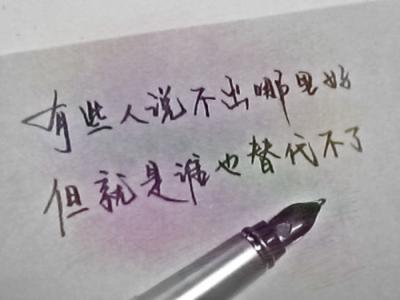 有些人说不出哪里好
但就是谁也替代不了